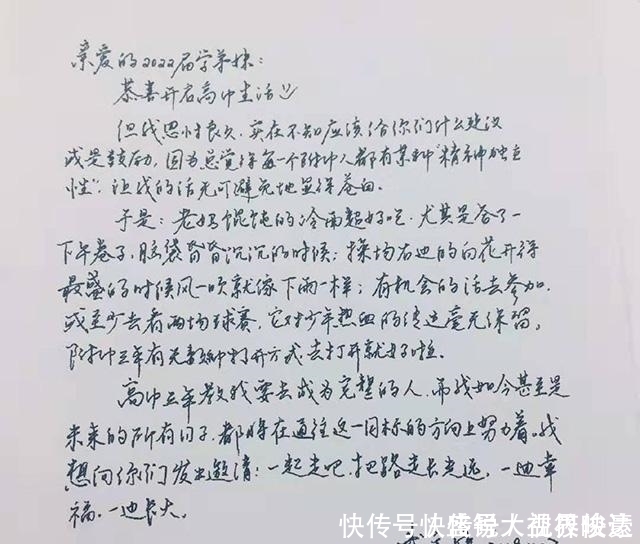 亲爱的2022届学弟妹：
恭喜开启高中生活
但我思忖良久，实在不知应该给你们什么建议
或是鼓励，因为总觉得每一个附中人都有某种“精神独立
性”，让我的话无可避免地显得苍白。
于是：老妈馄饨的冷面超好吃，尤其是答了一
下午卷子，脑袋昏昏沉沉的时候；操场右边的白花开得
最盛的时候风一吹就像下雨一样；有机会的话去参加
或至少去看两场球赛，它对少年热血的传达毫无保留。
附中三年有无数种打开方式，去打开就好啦。
高中三年教我要去成为完整的人，而我如今甚至是
未来的所有日子，都将在通往这一目标的方向上努力着。我
想向你们发出邀请：一起走吧，把路走长走远，一边幸
福，一边长大。
快传号